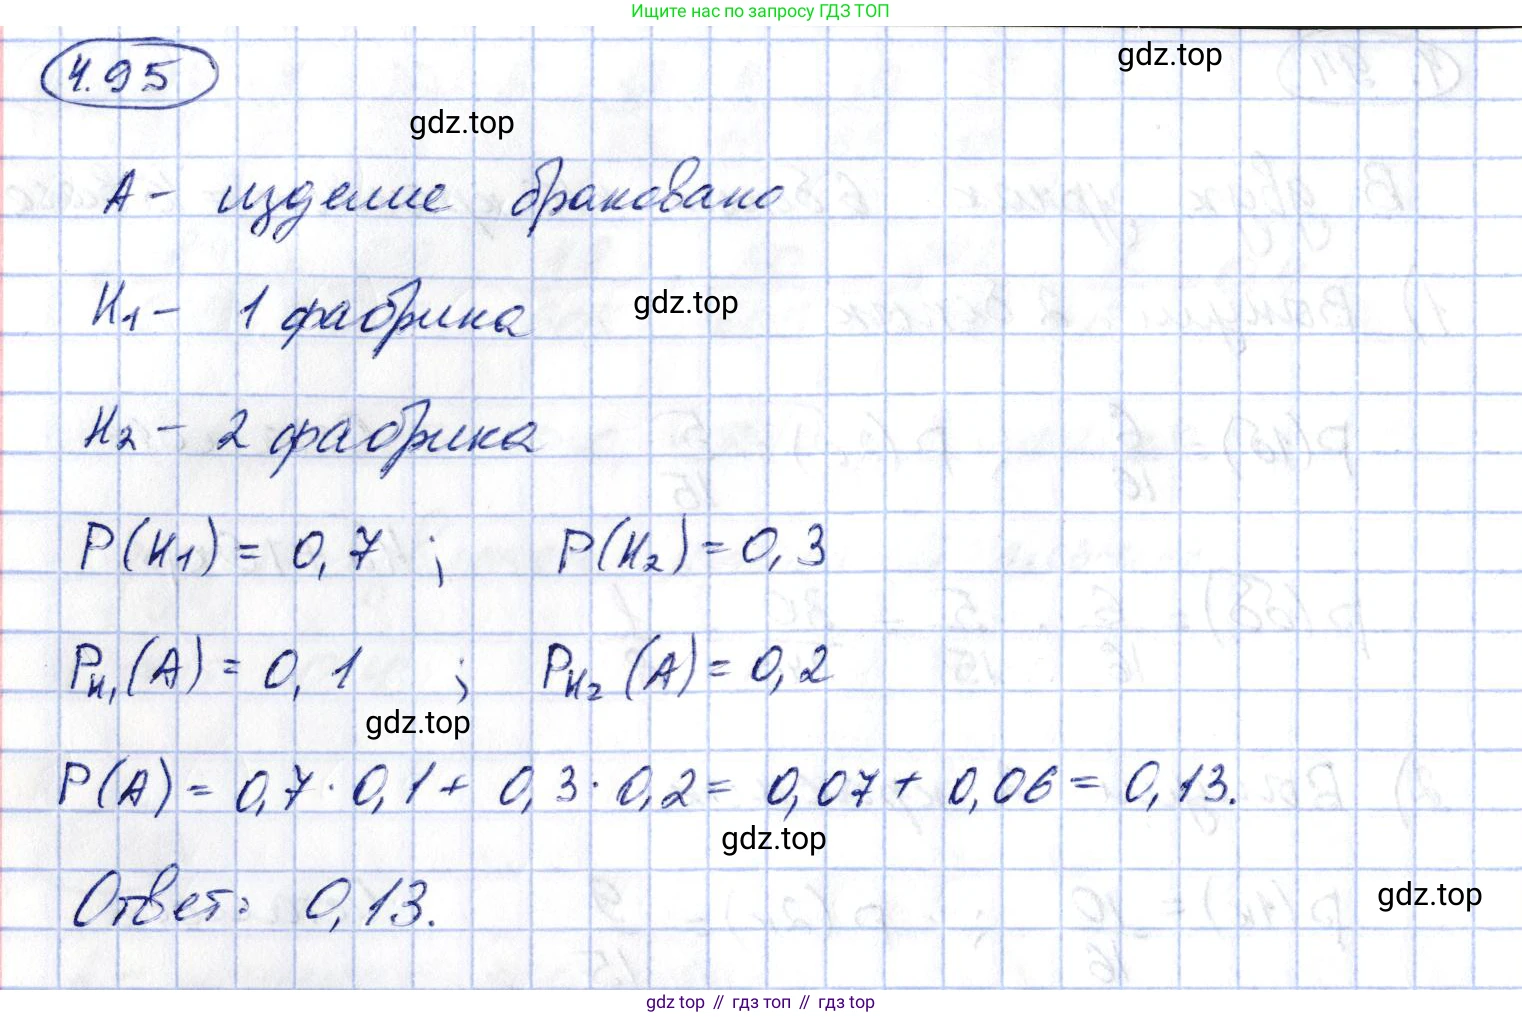 Ищите нас по запросу ГДЗ ТОП
4.95
gdz.top
gdz.top
А - изделие браковано
H₁ - 1 фабрика
gdz.top
H₂ - 2 фабрика
P(H₁) = 0,7 ; P(H₂) = 0,3
P_H₁(A) = 0,1 ; P_H₂(A) = 0,2
gdz.top
P(A) = 0,7 · 0,1 + 0,3 · 0,2 = 0,07 + 0,06 = 0,13.
gdz.top
Ответ: 0,13.
gdz.top
gdz top // гдз топ // гдз top